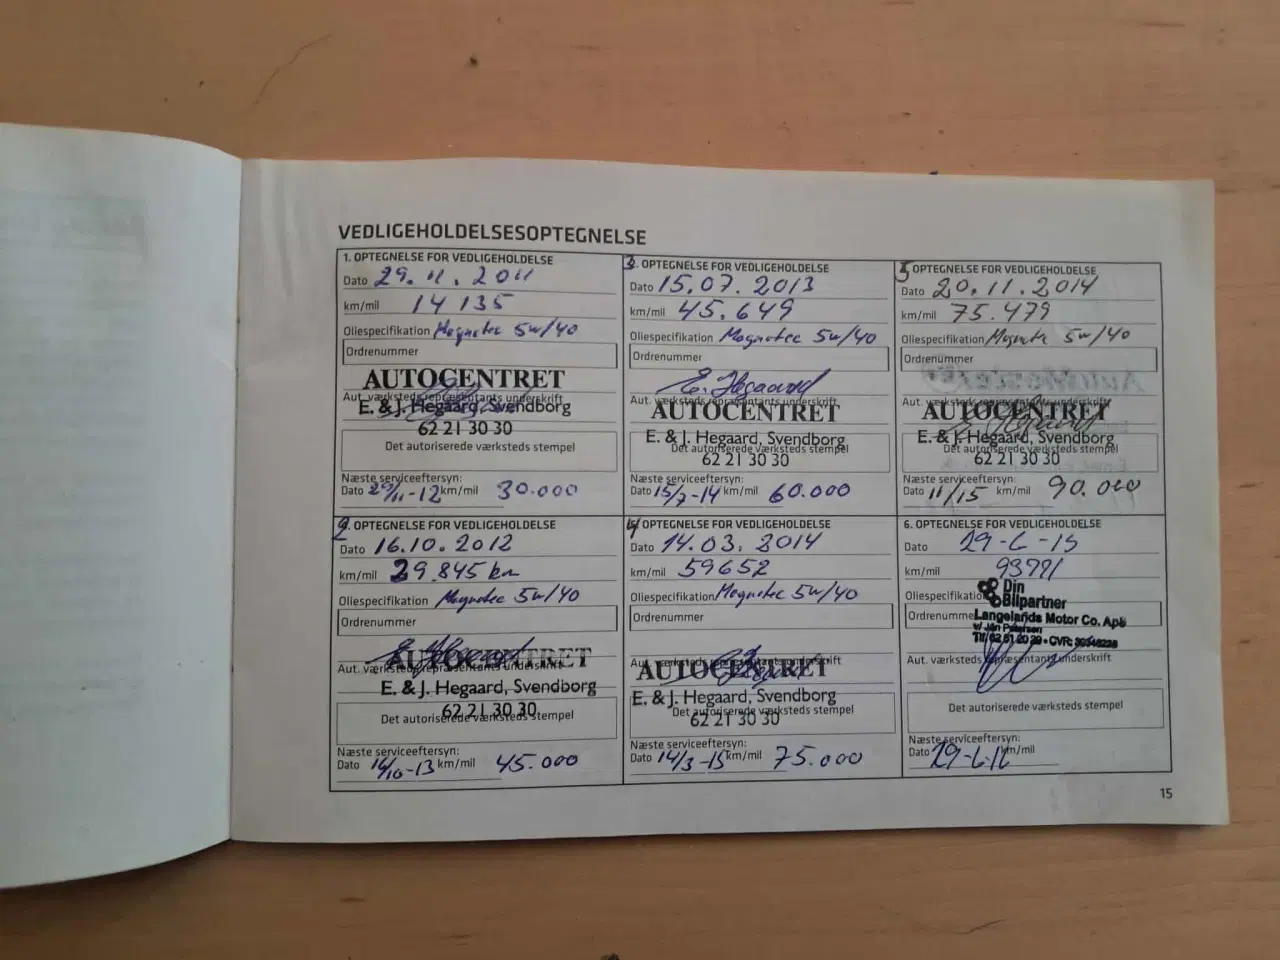 VEDLIGEHOLDELSESOPTEGNELSE
1. OPTEGNELSE FOR VEDLIGEHOLDELSE
Dato 29.11.2011
km/mil 14 135
Oliespecifikation Magnatec 5w/40
Ordrenummer
AUTOCENTRET
Aut. værkstedsrepræsentants underskrift
E. & J. Hegaard, Svendborg
62 21 30 30
Det autoriserede værksteds stempel
Næste serviceeftersyn:
Dato 29/11-12 km/mil 30.000
2. OPTEGNELSE FOR VEDLIGEHOLDELSE
Dato 16.10.2012
km/mil 29.845 km
Oliespecifikation Magnatec 5w/40
Ordrenummer
AUTOCENTRET
Aut. værkstedsrepræsentants underskrift
E. & J. Hegaard, Svendborg
62 21 30 30
Det autoriserede værksteds stempel
Næste serviceeftersyn:
Dato 16/10-13 km/mil 45.000
3. OPTEGNELSE FOR VEDLIGEHOLDELSE
Dato 15.07.2013
km/mil 45.649
Oliespecifikation Magnatec 5w/40
Ordrenummer
E. Hegaard
Aut. værkstedsrepræsentants underskrift
AUTOCENTRET
E. & J. Hegaard, Svendborg
Det autoriserede værksteds stempel
62 21 30 30
Næste serviceeftersyn:
Dato 15/7-14 km/mil 60.000
4 OPTEGNELSE FOR VEDLIGEHOLDELSE
Dato 14.03.2014
km/mil 59652
Oliespecifikation Magnatec 5w/40
Ordrenummer
Aut. værkstedsrepræsentants underskrift
AUTOCENTRET
E. & J. Hegaard, Svendborg
Det autoriserede værksteds stempel
62 21 30 30
Næste serviceeftersyn:
Dato 14/3-15 km/mil 75.000
5 OPTEGNELSE FOR VEDLIGEHOLDELSE
Dato 20.11.2014
km/mil 75.479
Oliespecifikation Magnatec 5w/40
Ordrenummer
Aut. værkstedsrepræsentants underskrift
AUTOCENTRET
E. & J. Hegaard, Svendborg
Det autoriserede værksteds stempel
62 21 30 30
Næste serviceeftersyn:
Dato 11/15 km/mil 90.000
6. OPTEGNELSE FOR VEDLIGEHOLDELSE
Dato 29-6-15
km/mil 93771
Din
Oliespecifikation Bilpartner
Ordrenummer Langelands Motor Co. ApS
v/ Jan Petersen
Tlf. 62 51 20 29 • CVR:
Aut. værkstedsrepræsentants underskrift
Det autoriserede værksteds stempel
Næste serviceeftersyn:
Dato 29-6-16 km/mil
15